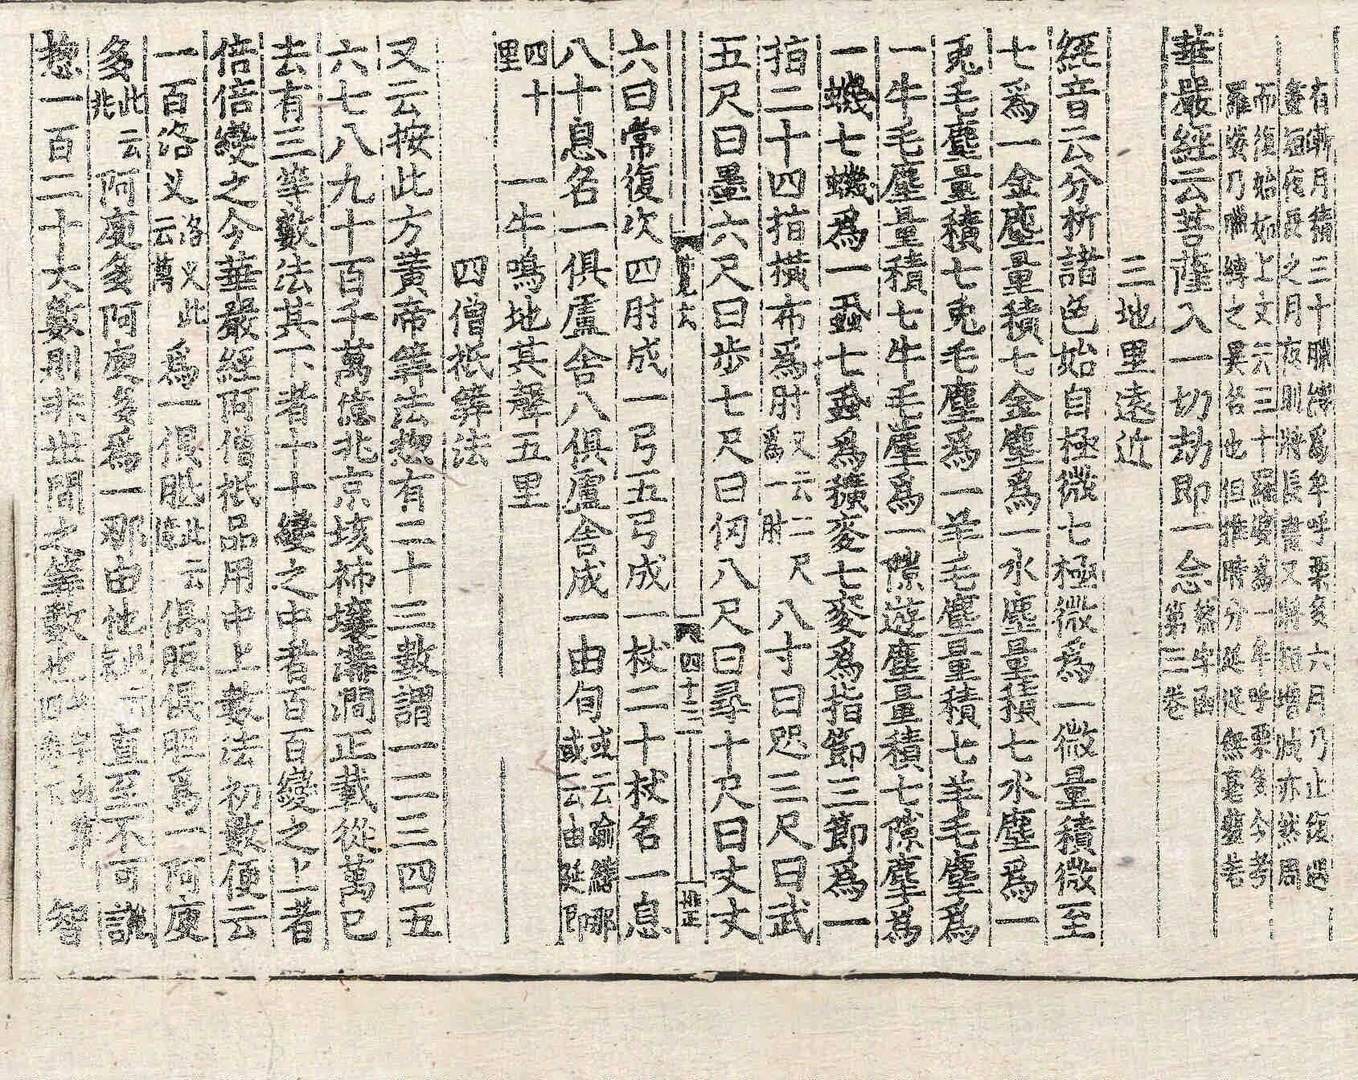 有漸月積三十臘縛爲牟呼栗多六月乃止復遇
晝短夜長之月夜則將長晝又將短增減亦然周
而復始如上文六三十羅婆爲一牟呼栗多今考
羅婆乃臘縛之異名也但推時分延促無毫髮差
華嚴經云菩薩入一切劫即一念
第三卷
三地里遠近
經音云分析諸色始自極微七極微爲一微量積微至
七爲一金塵量積七金塵爲一水塵量積七水塵爲一
兎毛塵量積七兎毛塵爲一羊毛塵量積七羊毛塵爲
一牛毛塵量積七牛毛塵爲一隙遊塵量積七隙塵爲
一蟣七蟣爲一蝨七蝨爲穬麥七麥爲指節三節爲一
指二十四指橫布爲肘又云二尺爲一肘八寸曰咫三尺曰武
五尺曰墨六尺曰步七尺曰仞八尺曰尋十尺曰丈丈
四十三
六曰常復次四肘成一弓五弓成一杖二十杖名一息
八十息名一俱盧舍八俱盧舍成一由旬或云踰繕那或云由延即
四十里 一牛鳴地其聲五里
四僧祇筭法
又云按此方黃帝筭法惣有二十三數謂一二三四五
六七八九十百千萬億兆京垓秭壤溝澗正載從萬已
去有三等數法其下者十十變之中者百百變之上者
倍倍變之今華嚴經阿僧祇品用中上數法初數便云
一百洛叉洛叉此云萬爲一俱胝此云億俱胝俱胝爲一阿庾
多此云兆阿庾多阿庾多爲一那由他此云直至不可說
惣一百二十大數則非世間之筭數也